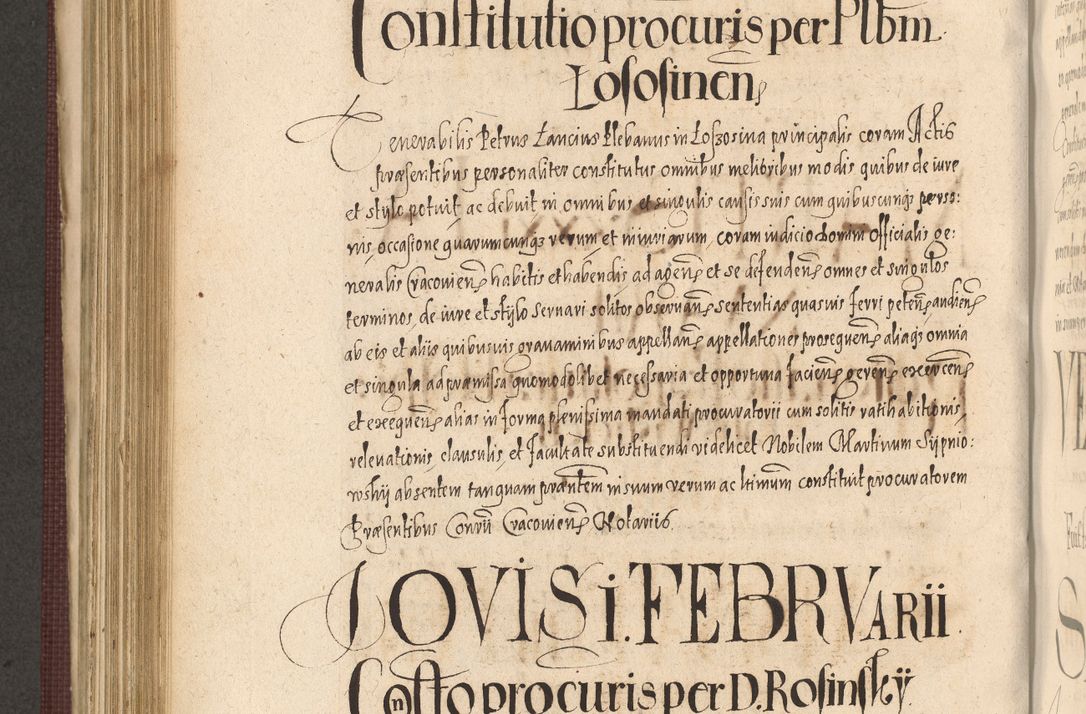 Constitutio procuris per Plbm
Lososinen
Venerabilis Petrus Łancius Plebanus in Loszosina principalis coram Actis
præsentibus personaliter constitutus omnibus melioribus modis quibus de iure
et stylo potuit ac debuit in omnibus et singulis causis suis cum quibuscunqз perso:
nis, occasione quarumcunqз rerum et iniuriarum, coram iudicio Domini Officialis ge:
neralis Cracovien habitis et habendis ad agen et se defenden omnes et singulos
terminos, de iure et stylo servari solitos observan sententias quasvis ferri peten audien
ab eis et aliis quibusvis gravaminibus appellan appellationes prosequen aliaqз omnia
et singula ad præmissa quomodolibet necessaria et opportuna facien geren exercen
et exequen alias in forma plenissima mandati procuratorii cum solitis ratihabitionis,
relevationis, clausulis, et facultate substituendi videlicet Nobilem Martinum Sypnio:
wskij absentem tanquam præntem in suum verum ac ltimum constituit procuratorem
Præsentibus Cracovien Notariis.
JOVIS i. FEBRVARii.
Constto procuris per D. Rosinskÿ.